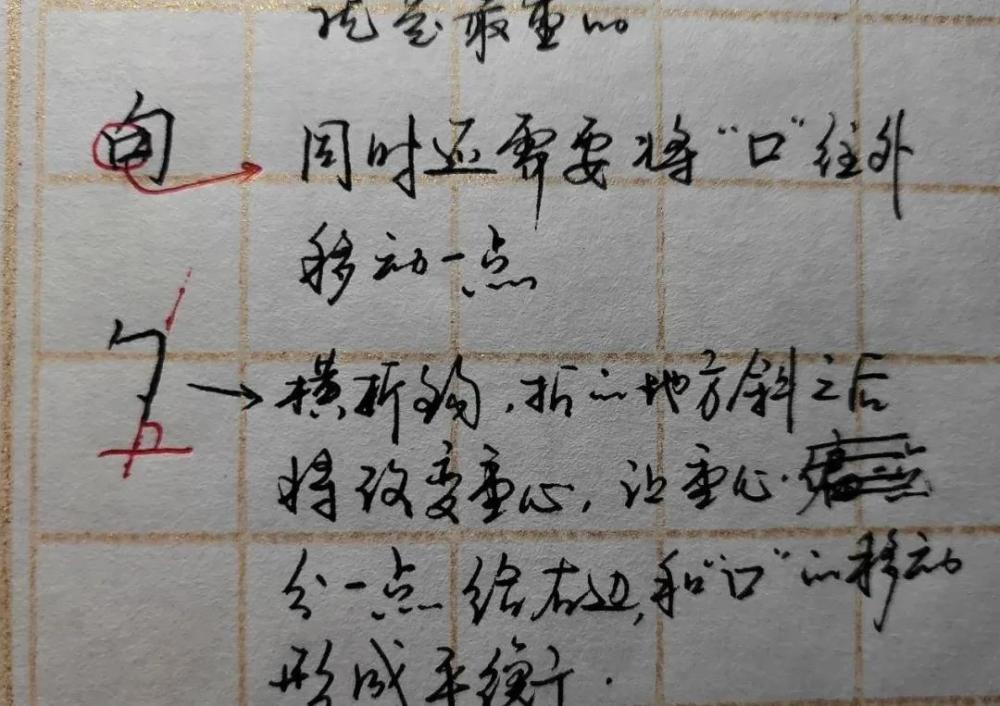 就是最重的
向 同时还需要将“口”往外
移动一点
横折钩，折的地方斜之后
将改变重心，让重心
分一点给右边，和“口”的移动
形成平衡.